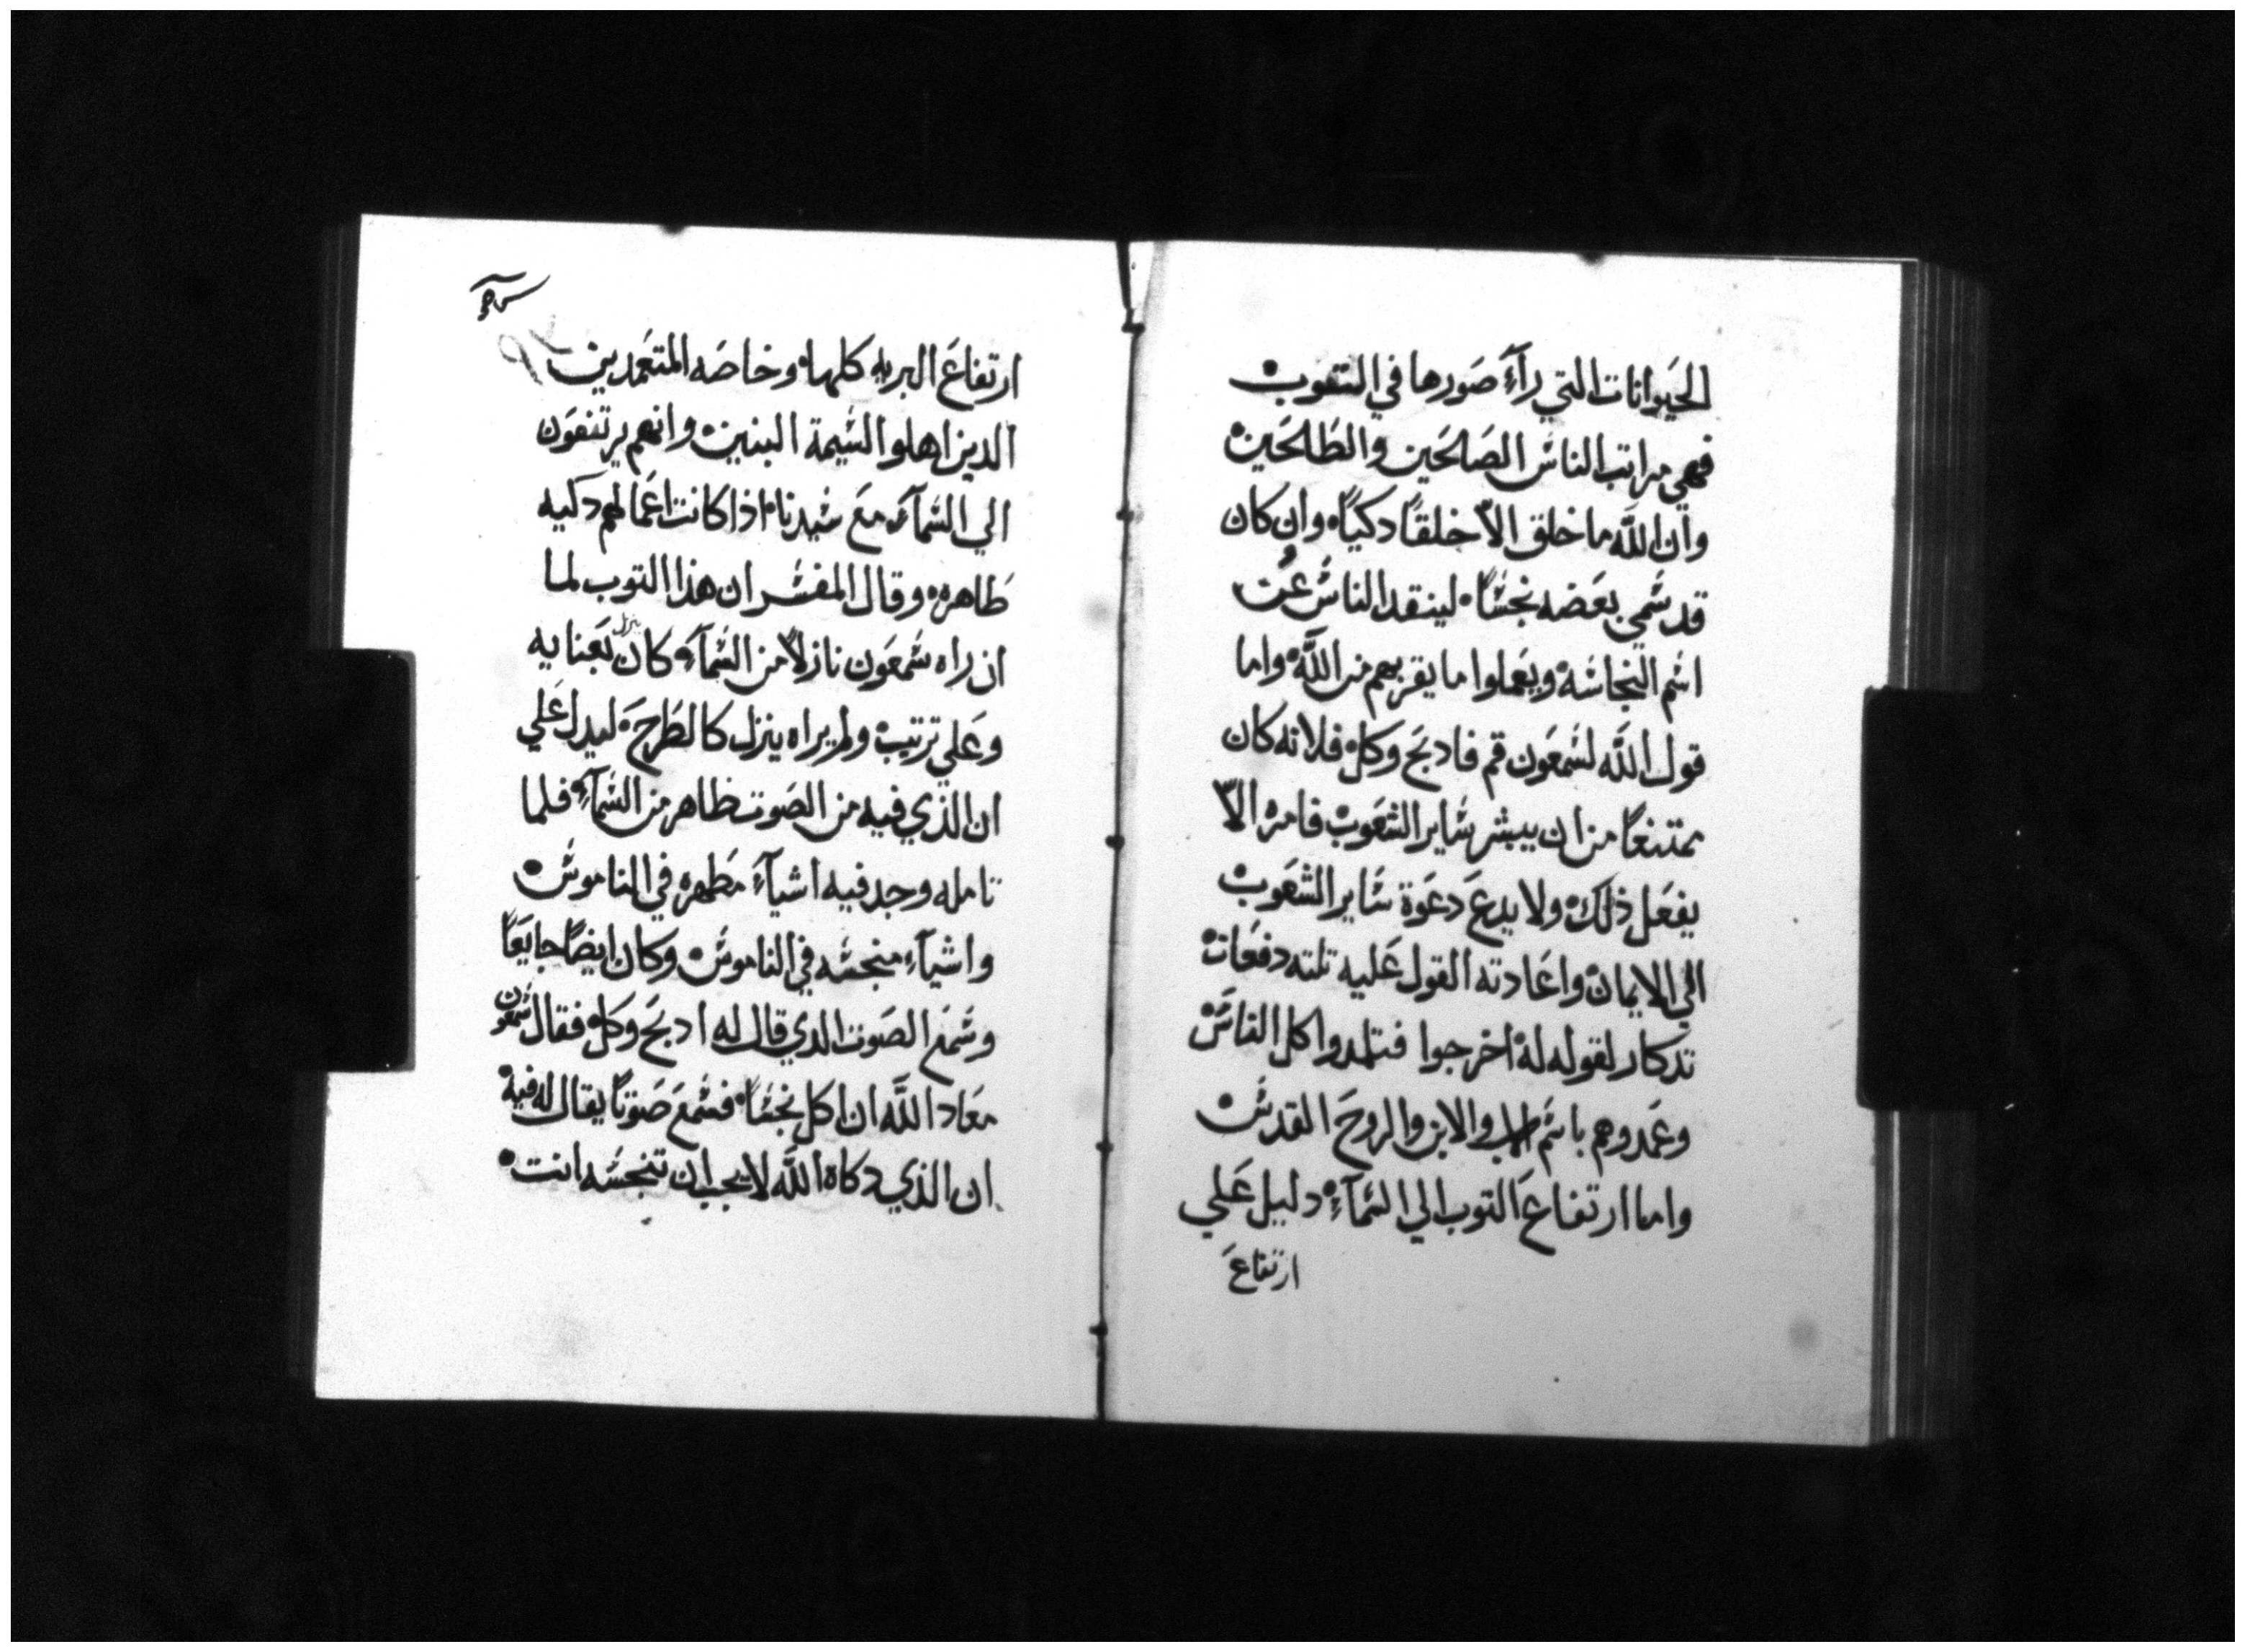 الحيوانات التي رآء صورها في التقوب
فهي مراتب الناس الصالحين والطالحين
وان الله ما خلق الا خلقاً دكياً وان كان
قد سمي بعضه نجساً لينقد الناس عن
اسم النجاسة ويعملوا ما يقربهم من الله واما
قول الله لسمعون قم فادبح وكل فلانه كان
ممتنعاً من ان يبشر ساير الشعوب فامره الا
يفعل ذلك ولا يدع دعوة ساير الشعوب
الي الايمان واعادته القول عليه تلته دفعات
تدكار لقوله له اخرجوا فتلمدوا كل الناس
وعمدوهم باسم الاب والابن والروح القدس
واما ارتفاع التوب الي السمآء دليل علي
ارتفاع
ارتفاع البريه كلها وخاصه المتعمدين
الدين اهلوا لشيمة البنين وانهم يرتفعون
الي السمآء مع سيدنا اذا كانت اعمالهم دكيه
طاهره وقال المفسر ان هذا التوب لما
ان راه سمعون نازلاً من السمآء كان ينزل بعنايه
وعلي ترتيب ولم يراه ينزل كالطرح ليدل علي
ان الذي فيه من الصوت ظاهر من السمآء فلما
تامله وجد فيه اشيآء مطهره في الناموس
واشيآء منجسه في الناموس وكان ايضاً جايعاً
وسمع الصوت الدي قال له ادبح وكل فقال سمعون
معاد الله ان اكل نجساً فسمع صوتاً يقال له فيه
ان الذي دكاه الله لا يجب ان تنجسه انت